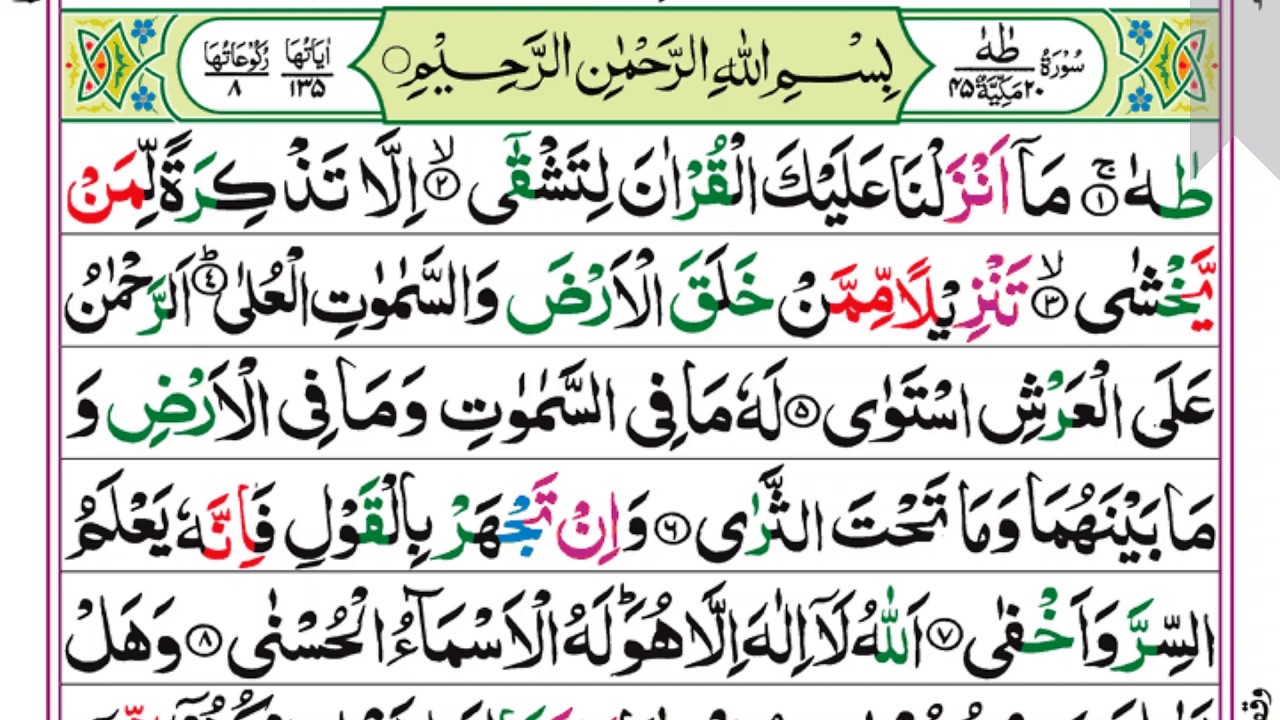 سُوْرَةُ طٰهٰ ٢٠ مَكِّيَّةٌ ۴۵
بِسْمِ اللّٰهِ الرَّحْمٰنِ الرَّحِيْمِ
اٰيَاتُهَا ١٣٥
رُكُوْعَاتُهَا ٨
طٰهٰ ۚ﴿١﴾ مَاۤ اَنْزَلْنَا عَلَيْكَ الْقُرْاٰنَ لِتَشْقٰٓى ۙ﴿٢﴾ اِلَّا تَذْكِرَةً لِّمَنْ
يَّخْشٰى ۙ﴿٣﴾ تَنْزِيْلًا مِّمَّنْ خَلَقَ الْاَرْضَ وَالسَّمٰوٰتِ الْعُلٰى ؕ﴿٤﴾ اَلرَّحْمٰنُ
عَلَى الْعَرْشِ اسْتَوٰى ﴿۵﴾ لَهٗ مَا فِى السَّمٰوٰتِ وَمَا فِى الْاَرْضِ وَ
مَا بَيْنَهُمَا وَمَا تَحْتَ الثَّرٰى ﴿۶﴾ وَاِنْ تَجْهَرْ بِالْقَوْلِ فَاِنَّهٗ يَعْلَمُ
السِّرَّ وَاَخْفٰى ﴿٧﴾ اَللّٰهُ لَاۤ اِلٰهَ اِلَّا هُوَؕ لَهُ الْاَسْمَآءُ الْحُسْنٰى ﴿٨﴾ وَهَلْ